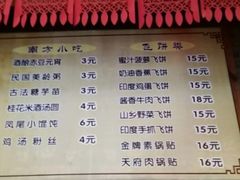 南方小吃
酒酿赤豆元宵 3元
民国美龄粥 3元
古法糖芋苗 3元
桂花米酒汤圆 4元
凤尾小馄饨 6元
鸡汤粉丝 4元
飞饼类
蜜汁菠萝飞饼 15元
奶油香蕉飞饼 15元
印度鸡蛋飞饼 15元
酱香牛肉飞饼 18元
山乡野菜飞饼 15元
印度手抓飞饼 15元
金牌素锅贴 15元
天府肉锅贴 16元